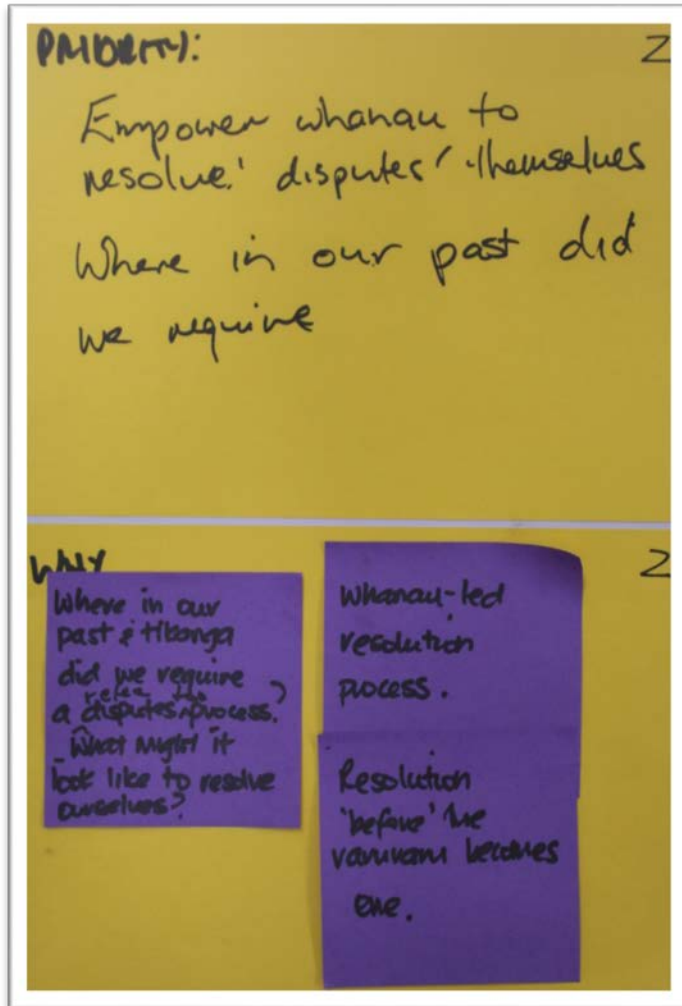 PRIORITY:
2
Empower whanau to
resolve 'disputes' themselves
Where in our past did
we require
WHY
2
Where in our
past & tikanga
did we require
a disputes process?
What might it
look like to resolve
ourselves?
Whanau-led
resolution
process.
Resolution
'before' the
raruraru becomes
one.